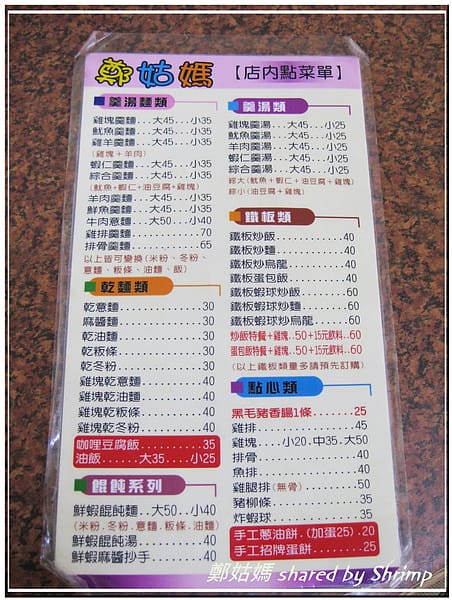 鄭姑媽 【店內點菜單】
羹湯麵類
雞塊羹麵...大45...小35
魷魚羹麵...大45...小35
雞羊羹麵...大45...小35
(雞塊+羊肉)
蝦仁羹麵...大45...小35
綜合羹麵...大45...小35
(魷魚+蝦仁+油豆腐+雞塊)
羊肉羹麵...大45...小35
鮮魚羹麵...大45...小35
牛肉意麵...大50...小40
雞排羹麵............70
排骨羹麵............65
以上皆可變換(米粉、冬粉、
意麵、粄條、油麵、飯)
乾麵類
乾意麵..............30
麻醬麵..............30
乾油麵..............30
乾粄條..............30
乾冬粉..............30
雞塊乾意麵..........40
雞塊乾油麵..........40
雞塊乾粄條..........40
雞塊乾冬粉..........40
咖哩豆腐飯..........35
油飯......大35...小25
餛飩系列
鮮蝦餛飩麵..大50..小40
(米粉.冬粉.意麵.粄條.油麵)
鮮蝦餛飩湯..........40
鮮蝦麻醬抄手........40
羹湯類
雞塊羹湯...大45...小25
魷魚羹湯...大45...小25
雞羊羹湯...大45...小25
蝦仁羹湯...大45...小25
綜合羹湯...大50...小25
綜大(魷魚+蝦仁+油豆腐+雞塊)
綜小(油豆腐+雞塊)
鐵板類
鐵板炒飯............40
鐵板炒麵............40
鐵板炒烏龍..........40
鐵板蛋包飯..........40
鐵板蝦球炒飯........60
鐵板蝦球炒麵........60
鐵板蝦球炒烏龍......60
炒飯特餐+雞塊..50+15元飲料..60
蛋包飯特餐+雞塊..50+15元飲料..60
(以上鐵板類量多請預先訂購)
點心類
黑毛豬香腸1條.......25
雞排................45
雞塊....小20.中35.大50
排骨................40
魚排................40
雞腿排(無骨)........50
豬柳條..............35
炸蝦球..............35
手工蔥油餅.(加蛋25).20
手工招牌蛋餅........20
鄭姑媽 shared by Shrimp